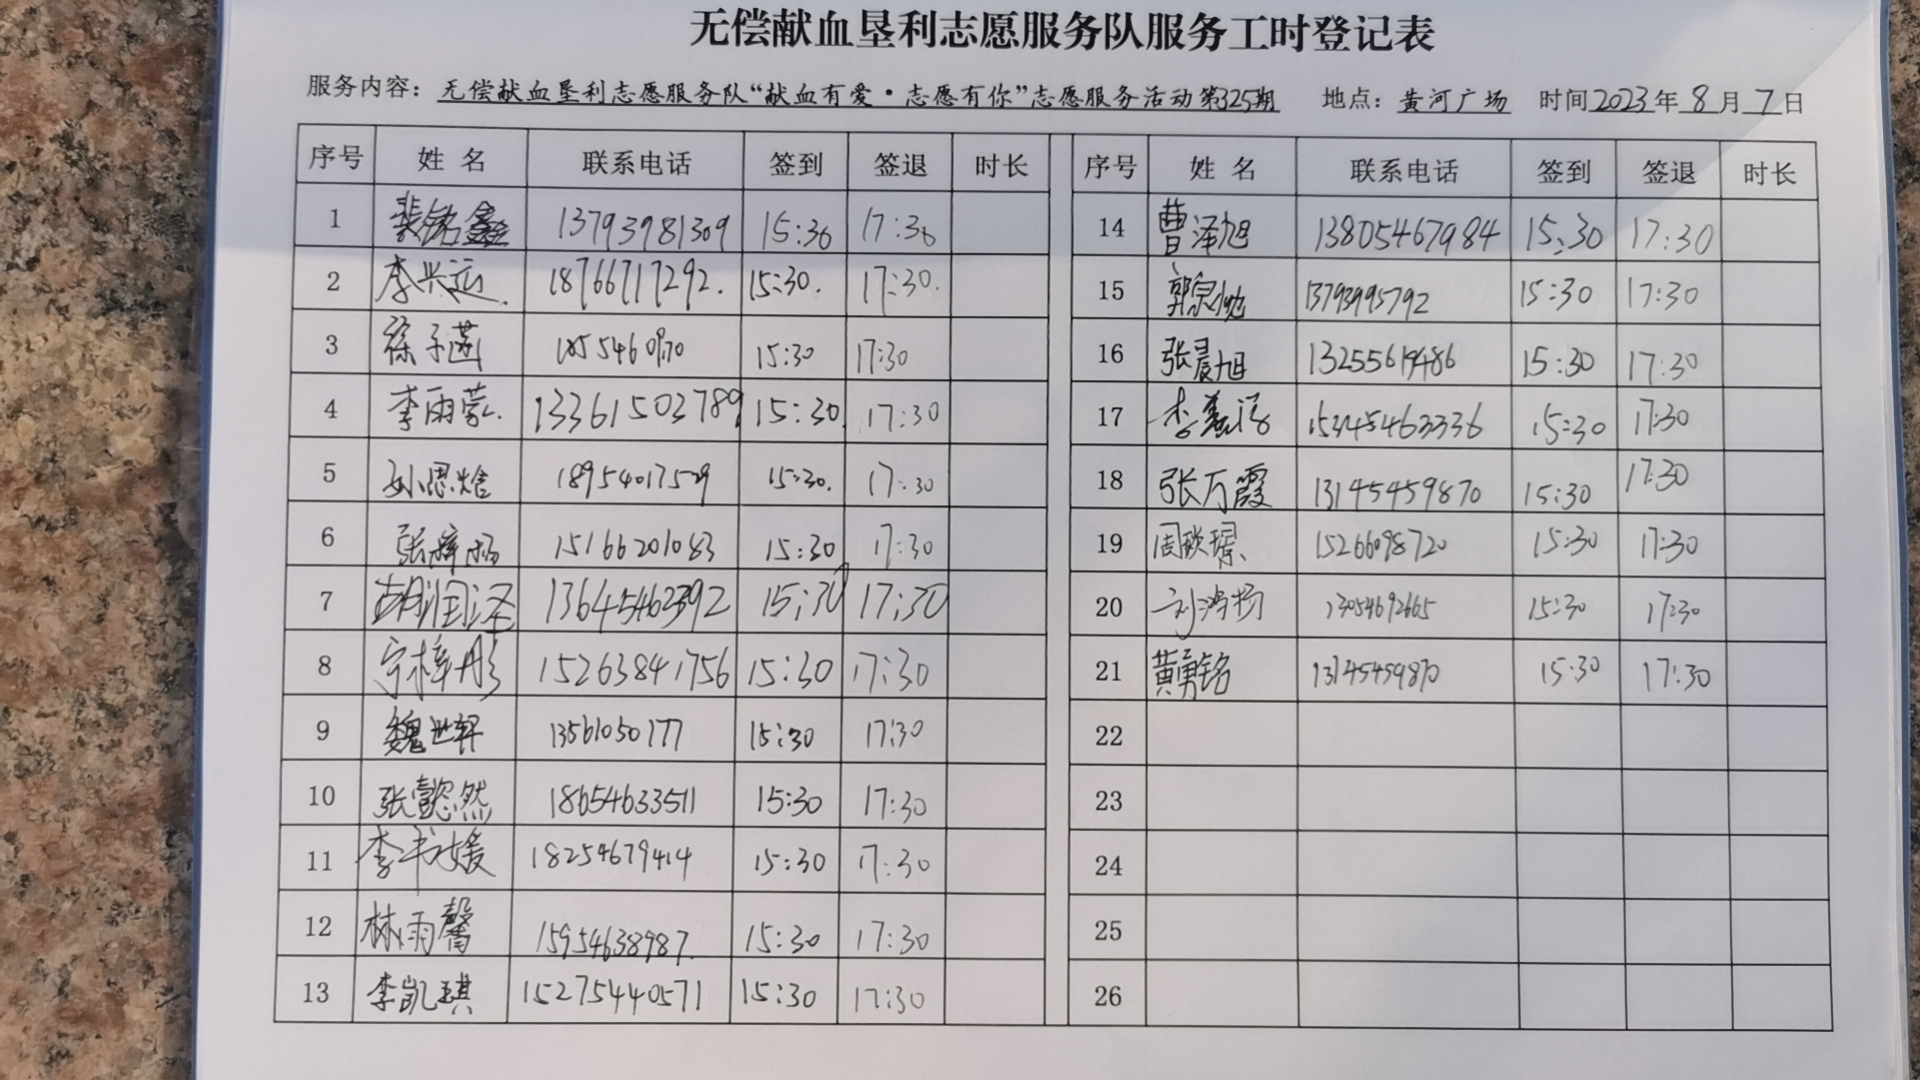 无偿献血垦利志愿服务队服务工时登记表
服务内容：无偿献血垦利志愿服务队“献血有爱·志愿有你”志愿服务活动第325期 地点：黄河广场 时间2023年8月7日
序号 姓名 联系电话 签到 签退 时长 序号 姓名 联系电话 签到 签退 时长
1 裴铭鑫 13793981309 15:30 17:30 14 曹泽旭 13805467984 15:30 17:30
2 李兴远. 18766717292. 15:30. 17:30. 15 13793995792 15:30 17:30
3 徐子涵 15:30 17:30 16 张晨旭 15:30 17:30
4 李雨蒙. 13361503789 15:30 17:30 17 15:30 17:30
5 孙思 15:30. 17:30 18 张万霞 13145459870 15:30 17:30
6 张梓杨 15166201083 15:30 17:30 19 周 15266098720 15:30 17:30
7 胡润泽 13645462392 15:30 17:30 20 刘鸿扬 15:30 17:30
8 宁梓彤 15263841756 15:30 17:30 21 黄勇铭 13145459870 15:30 17:30
9 魏世轩 13561050177 15:30 17:30 22
10 张懿然 18654633511 15:30 17:30 23
11 李书媛 18254679414 15:30 17:30 24
12 林雨馨 15954638987. 15:30 17:30 25
13 李凯琪 15275440571 15:30 17:30 26